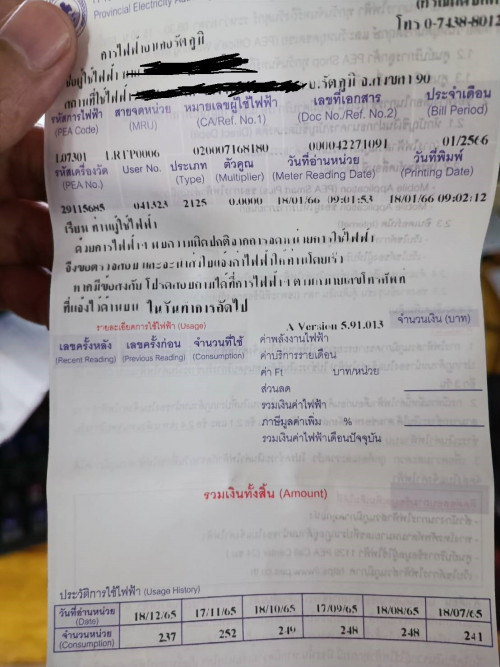 Provincial Electricity
โทร 0-7438-8012
การไฟฟ้า อำเภอรัตภูมิ
ชื่อผู้ใช้ไฟฟ้า
สถานที่ใช้ไฟฟ้า อ.รัตภูมิ จ.สงขลา 90
รหัสการไฟฟ้า สายจดหน่วย หมายเลขผู้ใช้ไฟฟ้า เลขที่เอกสาร ประจำเดือน
(PEA Code) (MRU) (CA/Ref. No.1) (Doc No./Ref. No.2) (Bill Period)
L07301 LRTP0006 020007168180 000042271091 01/2566
รหัสเครื่องวัด User No. ประเภท ตัวคูณ วันที่อ่านหน่วย วันที่พิมพ์
(PEA No.) (Type) (Multiplier) (Meter Reading Date) (Printing Date)
29115685 041323 2125 0.0000 18/01/66 09:01:53 18/01/66 09:02:12
เรียน ท่านผู้ใช้ไฟฟ้า
ด้วยการไฟฟ้าฯ พบความผิดปกติจากการจดหน่วยการใช้ไฟฟ้า
จึงขอตรวจสอบ และจะนำส่งใบแจ้งค่าไฟฟ้าให้ท่านโดยเร็ว
หากมีข้อสงสัย โปรดสอบถามได้ที่การไฟฟ้าฯ ตามหมายเลขโทรศัพท์
ที่แจ้งไว้ด้านบน ในวันทำการถัดไป
รายละเอียดการใช้ไฟฟ้า (Usage) A Version 5.91.013 จำนวนเงิน (บาท)
เลขครั้งหลัง เลขครั้งก่อน จำนวนที่ใช้ ค่าพลังงานไฟฟ้า
(Recent Reading) (Previous Reading) (Consumption) ค่าบริการรายเดือน
ค่า Ft บาท/หน่วย
ส่วนลด
รวมเงินค่าไฟฟ้า
ภาษีมูลค่าเพิ่ม %
รวมเงินค่าไฟฟ้าเดือนปัจจุบัน
รวมเงินทั้งสิ้น (Amount)
ประวัติการใช้ไฟฟ้า (Usage History)
วันที่อ่านหน่วย (Date) 18/12/65 17/11/65 18/10/65 17/09/65 18/08/65 18/07/65
จำนวนหน่วย (Consumption) 237 252 249 248 248 241